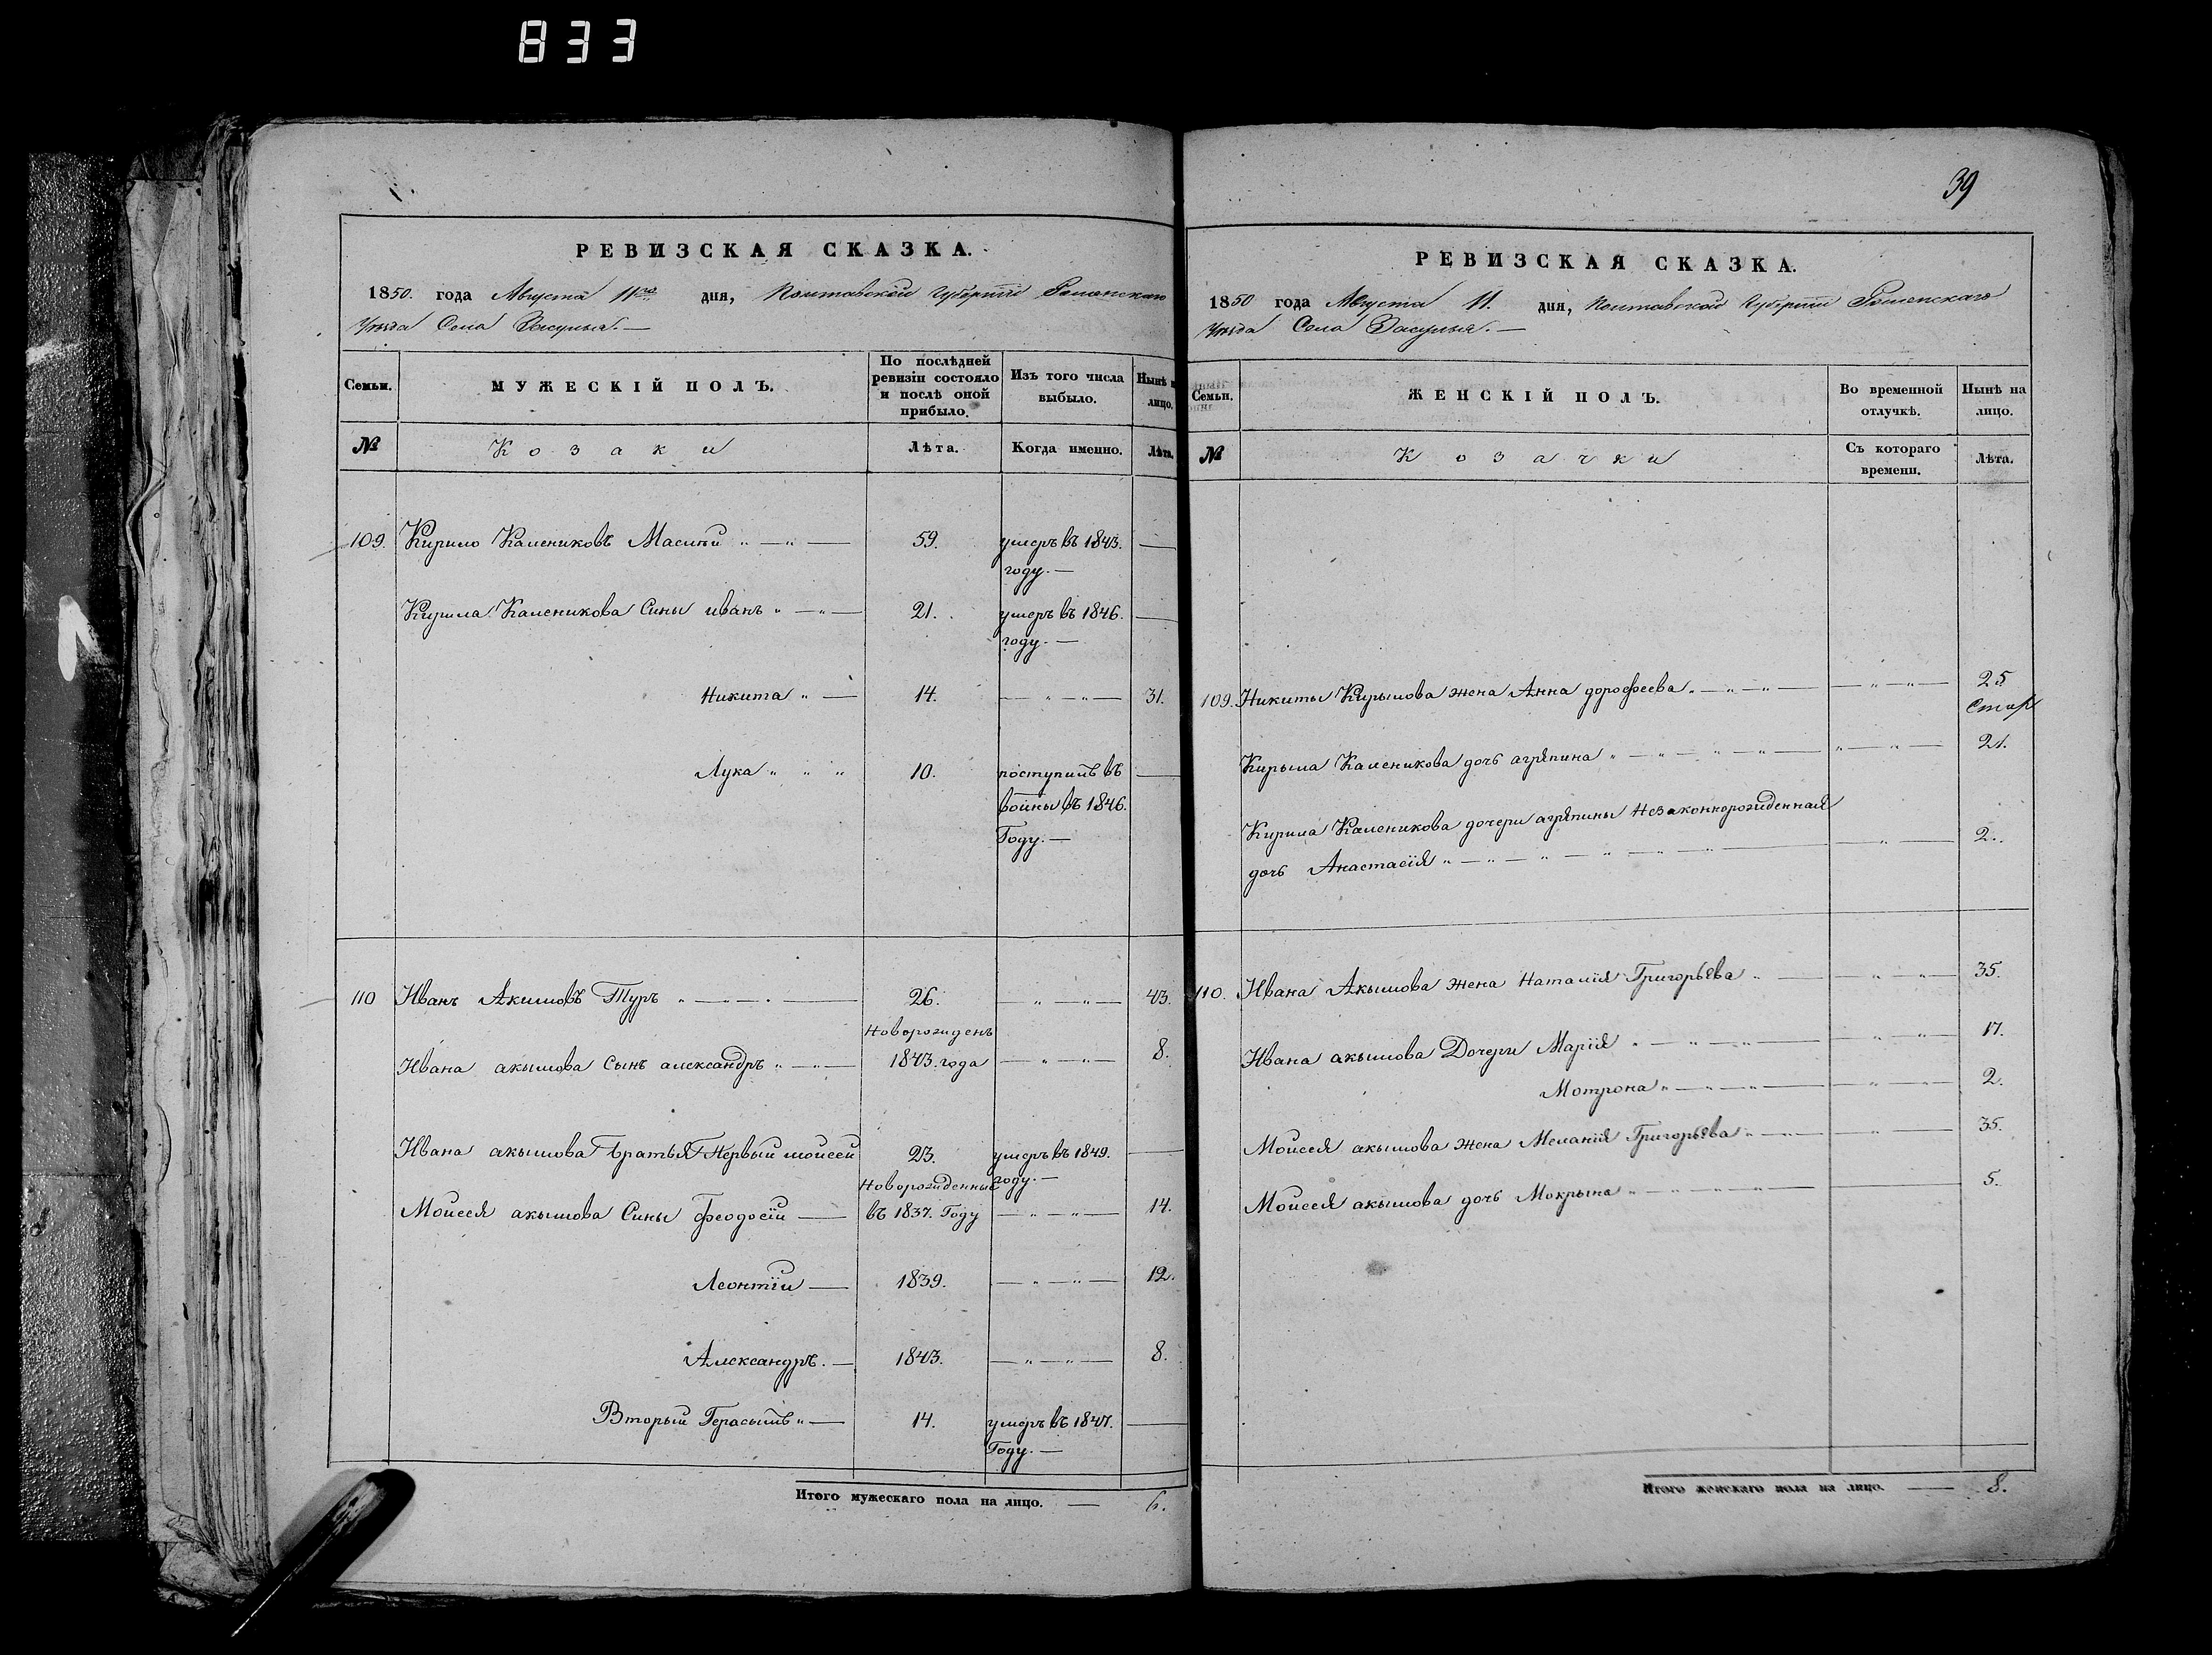 833
РЕВИЗСКАЯ СКАЗКА.
1850. года Августа 11го дня, Полтавской Губернiи Роменскаго
Уѣзда Села Засулья. —
Семьи.
МУЖЕСКІЙ ПОЛЪ.
По послѣдней ревизіи состояло и послѣ оной прибыло.
Изъ того числа выбыло.
Нынѣ на лицо.
№
Козаки
Лѣта.
Когда именно.
Лѣта.
109. Кирило Калениковъ 59. умеръ въ 1843. году. —
Кирила Каленикова Сины иванъ 21. умеръ въ 1846. году. —
Никита 14. 31.
Лука 10. поступилъ въ
войны въ 1846.
Году. —
110 Иванъ Акимовъ Туръ 26. 43.
Новорожденъ
Ивана акымова Сынъ александръ 1843. года 8.
Ивана акымова братья Первый моисей 23. умеръ въ 1849. году. —
Новорожденные
Моисея акымова Сины феодосiй въ 1837. Году 14.
Леонтiй 1839. 12.
Александръ. 1843. 8.
Вторый Герасымъ 14. умеръ въ 1847. Году. —
Итого мужескаго пола на лицо. — 6.
39
РЕВИЗСКАЯ СКАЗКА.
1850 года Августа 11. дня, Полтавской Губернiи Роменскаго
Уѣзда Села Засулья. —
Семьи.
ЖЕНСКІЙ ПОЛЪ.
Во временной отлучкѣ.
Нынѣ на лицо.
№
Козачки
Съ котораго времени.
Лѣта.
109. Никиты Кирылова жена Анна дорофеева 25
Кирыла Каленикова дочь агрепина 21.
Кирила Каленикова дочери агрепины Незаконнорожденная
дочь Анастасiя 2.
110. Ивана Акымова жена Наталiя Григорьева 35.
Ивана акымова Дочери Марiя 17.
Мотрона 2.
Моисея акымова жена Меланiя Григорьева 35.
Моисея акымова дочь Мокрына 5.
Итого женскаго пола на лицо. — 8.